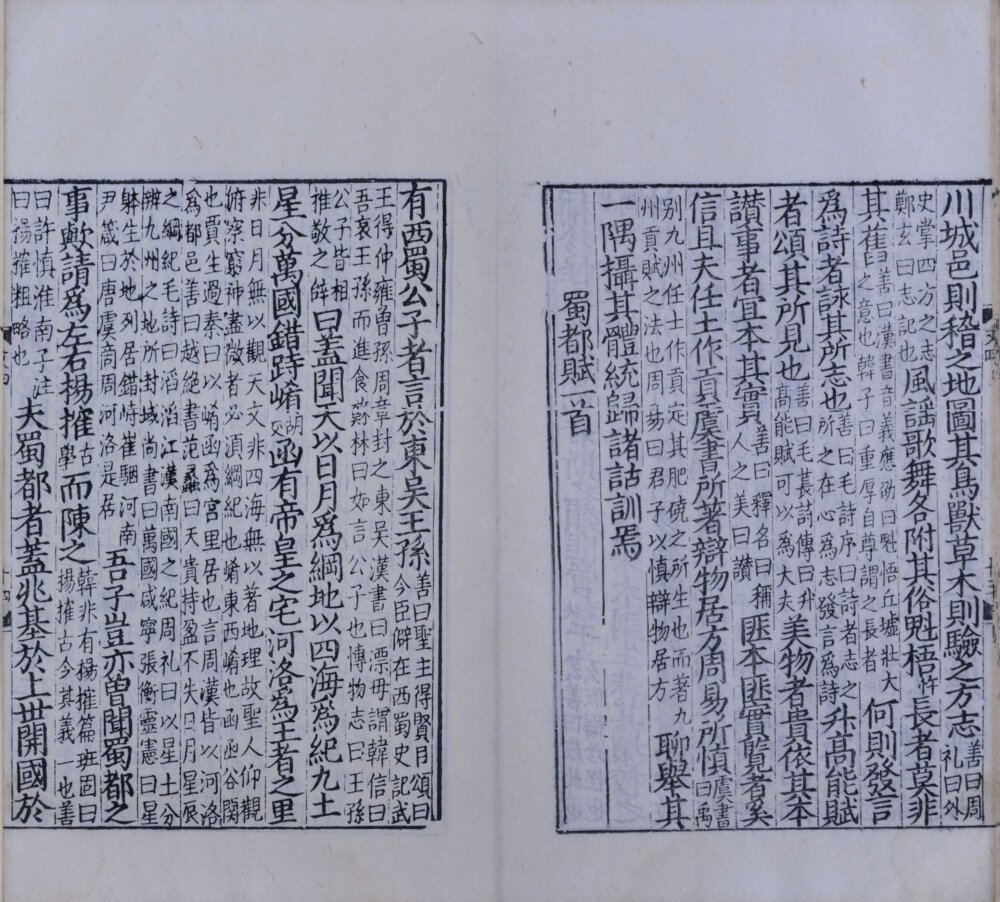 川城邑則稽之地圖其鳥獸草木則驗之方志善曰周禮曰外
史掌四方之志鄭玄曰志記也風謠歌舞各附其俗魁梧忤長者莫非
其舊善曰漢書音義應劭曰魁悟丘墟壯大之意也韓子曰重厚自尊謂之長者何則發言
為詩者詠其所志也善曰毛詩序曰詩者志之所之在心為志發言為詩升高能賦
者頌其所見也善曰毛萇詩傳曰升高能賦可以為大夫美物者貴依其本
讚事者宜本其實善曰釋名曰稱人之美曰讚匪本匪實覽者奚
信且夫任土作貢虞書所著辯物居方周易所慎虞書曰禹
別九州任土作貢定其肥磽之所生也而著九州貢賦之法也周易曰君子以慎辯物居方聊舉其
一隅攝其體統歸諸詁訓焉
蜀都賦一首
有西蜀公子者言於東吳王孫善曰聖主得賢臣頌曰今臣僻在西蜀史記武
王得仲雍曾孫周章封之東吳漢書曰漂母謂韓信曰吾哀王孫而進食蘇林曰如言公子也博物志曰王孫
公子皆相推敬之辭曰蓋聞天以日月為綱地以四海為紀九土
星分萬國錯跱崤胡交函有帝皇之宅河洛為王者之里
非日月無以觀天文非四海無以著地理故聖人仰觀俯察窮神盡微者必須綱紀也崤東西崤也函函谷關
也賈生過秦曰以崤函為宮里居也言周漢皆以河洛為都邑善曰越絕書范蠡曰天貴持盈不失日月星辰
之綱紀毛詩曰滔滔江漢南國之紀周礼曰以星土分辨九州之地所封域尚書曰萬國咸寧張衡靈憲曰星
躰生於地列居錯峙崔駰河南尹箴曰唐虞商周河洛是居吾子豈亦曾聞蜀都之
事歟請為左右揚搉古學而陳之韓非有楊搉篇班固曰揚搉古今其義一也善
曰許慎淮南子注曰揚搉粗略也夫蜀都者蓋兆基於上世開國於